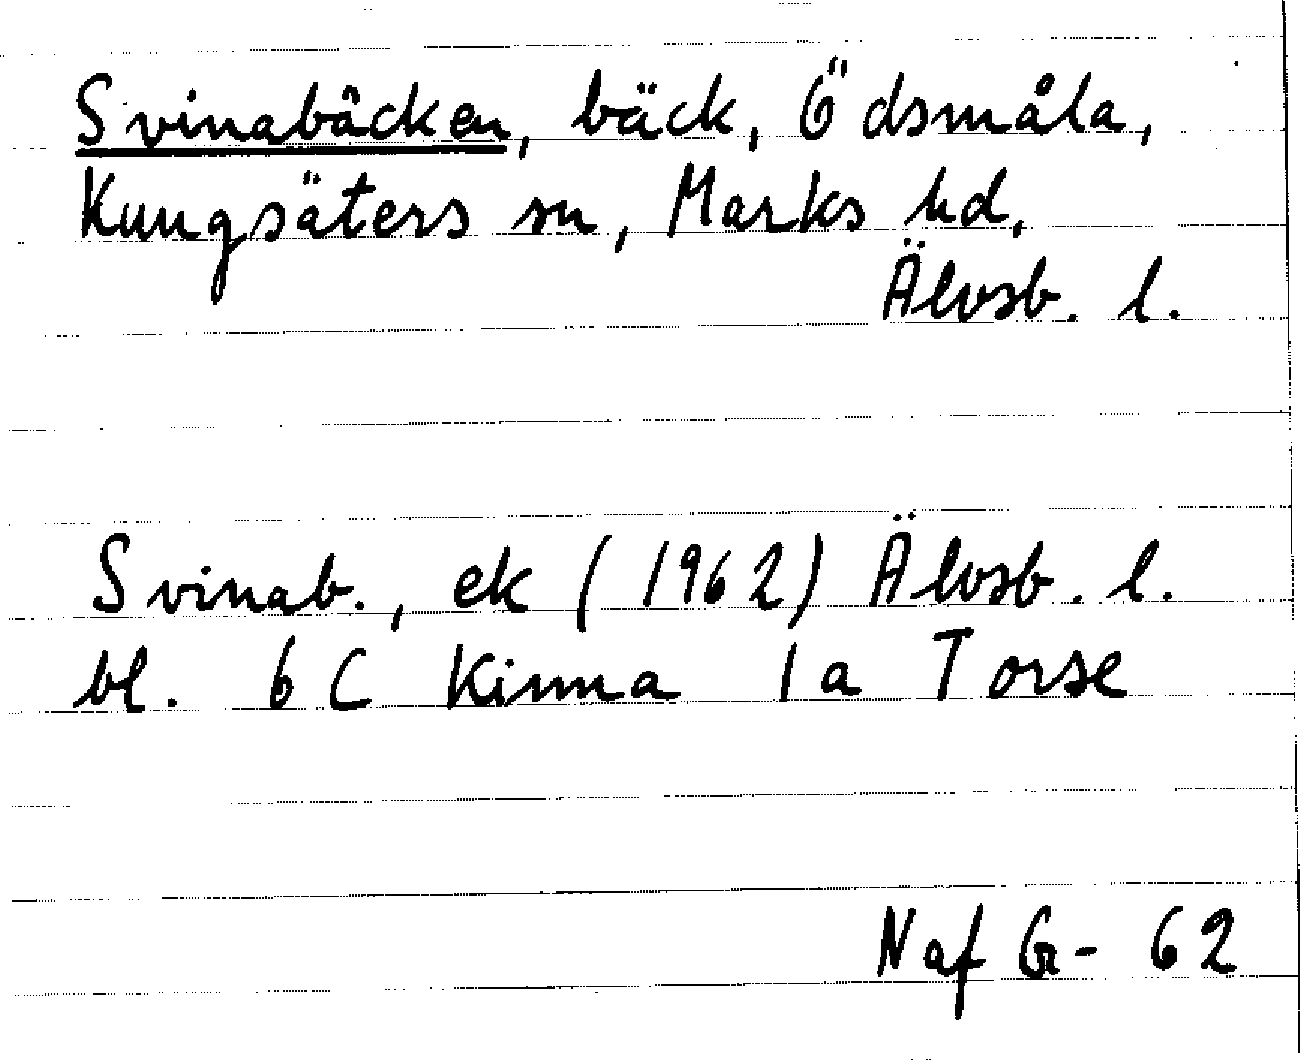 Svinabäcken, bäck, Ödsmåla,
Kungsäters sn, Marks hd,
Älvsb. l.
Svinab., ek (1962) Älvsb. l.
bl. 6 C Kinna 1a Torse
Naf G- 62